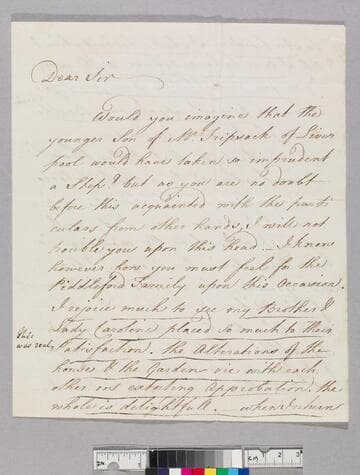 Dear Sir
Would you imagine that the
younger Son of Mr. Tripsack of Liver
pool would have taken so imprudent
a Step? but as you are no doubt
before this acquainted with the parti
culars from other hands, I will not
trouble you upon this Head. - I know
however how you must feel for the
Fiddleford Family upon this Occasion.
I rejoice much to see my Brother &
Lady Caroline placed so much to their
this
was real
Satisfaction. the Alterations of the
house & the Garden vie with each
other in extorting Approbation. the
whole is delightfull. - when I